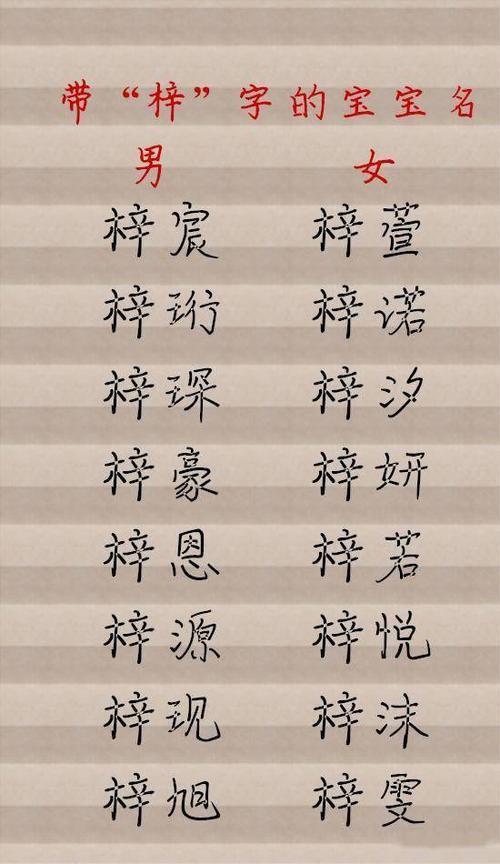 带“梓”字的宝宝名
男 女
梓宸 梓萱
梓珩 梓诺
梓琛 梓汐
梓豪 梓妍
梓恩 梓若
梓源 梓悦
梓现 梓沫
梓旭 梓雯